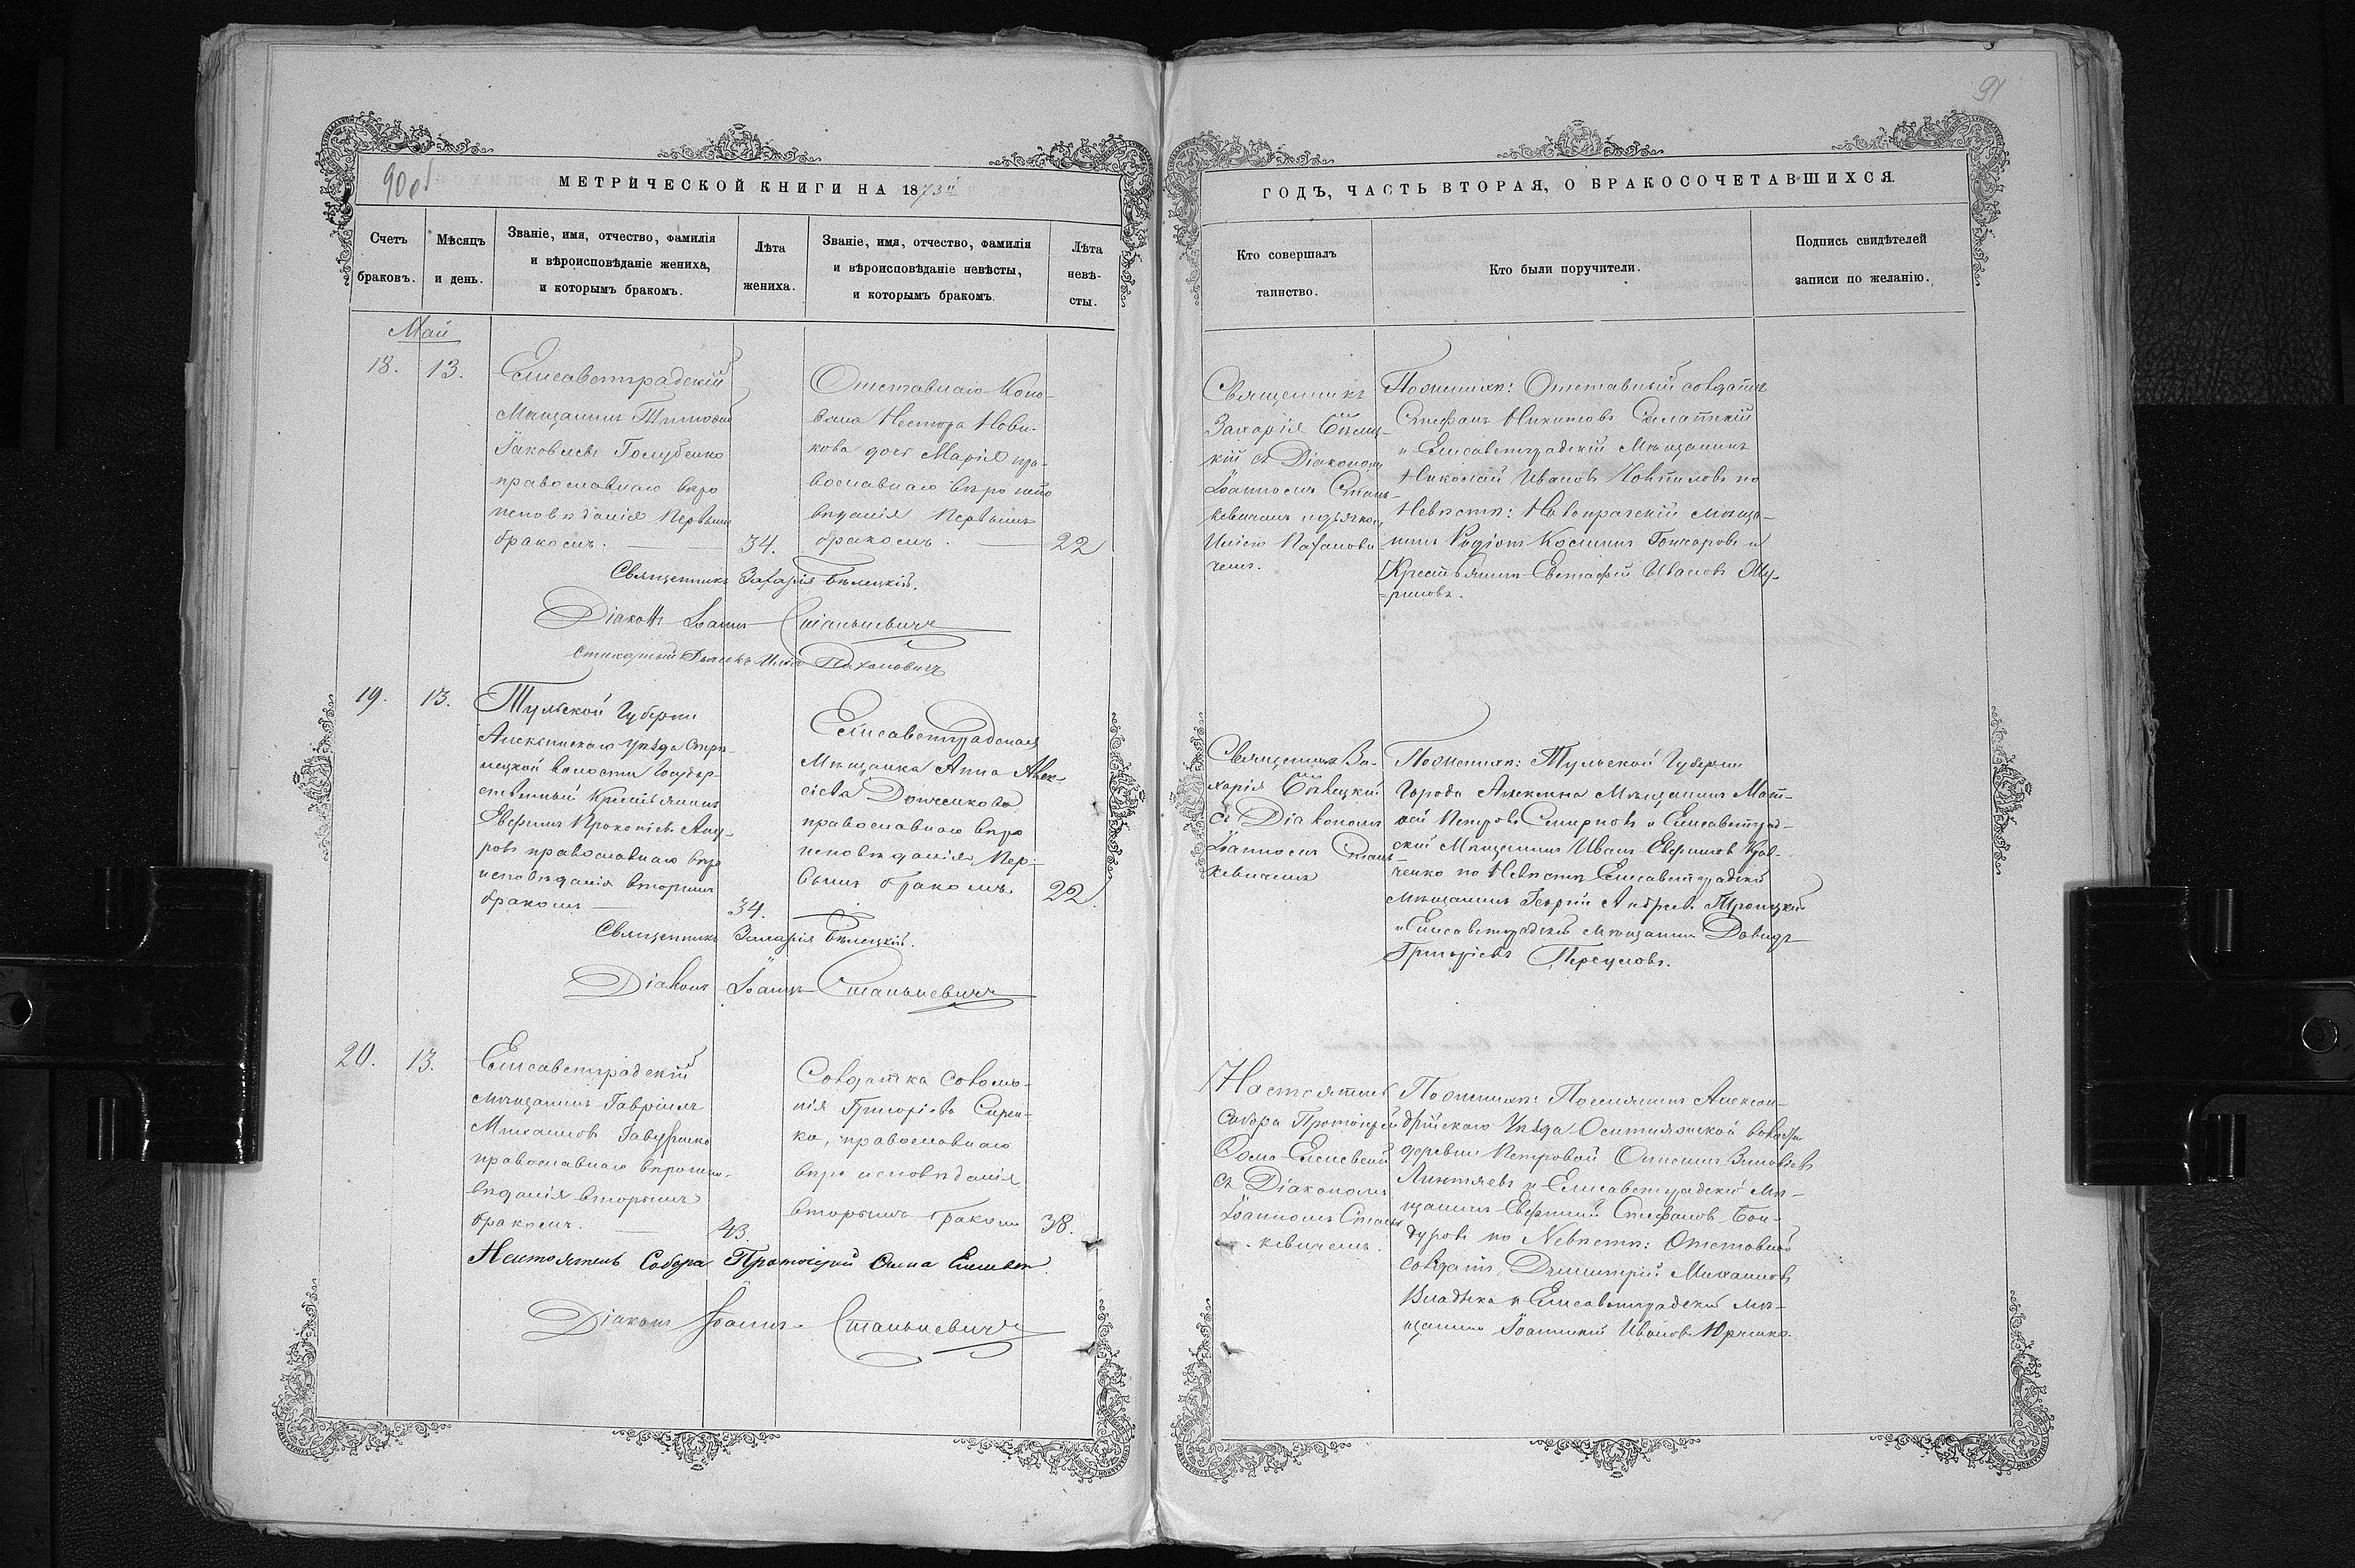 90об
МЕТРИЧЕСКОЙ КНИГИ НА 1873й
Счетъ браковъ.
Мѣсяцъ и день.
Званіе, имя, отчество, фамилія
и вѣроисповѣданіе жениха,
и которымъ бракомъ.
Лѣта
жениха.
Званіе, имя, отчество, фамилія
и вѣроисповѣданіе невѣсты,
и которымъ бракомъ.
Лѣта
невѣ-
сты.
Май
18.
13.
Елисаветградскій
Мѣщанинъ Тимофей
Іаковлевъ Голубенко
православнаго вѣро
исповѣданія первымъ
бракомъ.
34.
Отставнаго Коно-
вала Нестора Нови-
кова дочь Марія пра-
вославнаго вѣроиспо
вѣданія первымъ
бракомъ.
22
Священникъ Захарія Бѣлецкій.
Діаконъ Іоаннъ Станкевичъ
Стихарный Дьячекъ Илія Пахановичъ
19.
13.
Тульской Губерніи
Алексинскаго уѣзда Стрѣ-
лецкой волости Государ-
ственный Крестьянинъ
Евфимъ Прокопіевъ
православнаго вѣро
исповѣданія вторымъ
бракомъ
34.
Елисаветградская
Мѣщанка Анна Алек-
сіева Донченкова
православнаго вѣро
исповѣданія пер-
вымъ бракомъ.
22.
Священникъ Захарія Бѣлецкій.
Діаконъ Іоаннъ Станкевичъ
20.
13.
Елисаветградскій
мѣщанинъ Гавріилъ
Михаиловъ Гавришко
православнаго вѣроиспо-
вѣданія вторымъ
бракомъ.
43.
Солдатка Соломо-
нія Григоріева Сирен-
ко, православнаго
вѣро исповѣданія
вторымъ бракомъ
38.
Настоятель Собора Протоіерей Фома Елисевск
Діаконъ Іоаннъ Станкевичъ
91
ГОДЪ, ЧАСТЬ ВТОРАЯ, О БРАКОСОЧЕТАВШИХСЯ.
Кто совершалъ
таинство.
Кто были поручители.
Подпись свидѣтелей
записи по желанію.
Священникъ
Захарія Бѣлец-
кій съ Діакономъ
Іоанномъ Стань-
кевичемъ и дьячкомъ
Иліею Паханови-
чемъ.
По женихѣ: Отставный солдатъ
Стефанъ Никитовъ
и Елисаветградскій Мѣщанинъ
Николай Ивановъ по
Невѣстѣ: Новопражскій мѣща-
нинъ Родіонъ Косминъ Гончаровъ и
Крестьянинъ Евстафій Ивановъ Шу-
=риновъ.
Священникъ За-
харія Бѣлецкій
съ Діакономъ
Іоанномъ Стань-
кевичемъ
По женихѣ: Тульской Губерніи
Города Алексина Мѣщанинъ Мат-
вей Петровъ Смирновъ и Елисаветград-
скій Мѣщанинъ Иванъ Евфимовъ Крав-
ченко по Невѣстѣ Елисаветградскій
мѣщанинъ Георгій Андреевъ Троицкій
и Елисаветградскій мѣщанинъ Давидъ
Григоріевъ
Настоятель
Собора Протоіерей
Фома Елисевскій
съ Діакономъ
Іоанномъ Стань
кевичемъ.
По женихѣ: Поселянинъ Алексан-
дрійскаго Уѣзда волости
деревни Петровой Онисимъ Зиновіевъ
и Елисаветградскій мѣ-
щанинъ Евфимій Стефановъ Бон-
дуровъ по Невѣстѣ: Отставной
солдатъ Димитрій Михаиловъ
Владыка и Елисаветградскій мѣ-
щанинъ Іоанникій Ивановъ